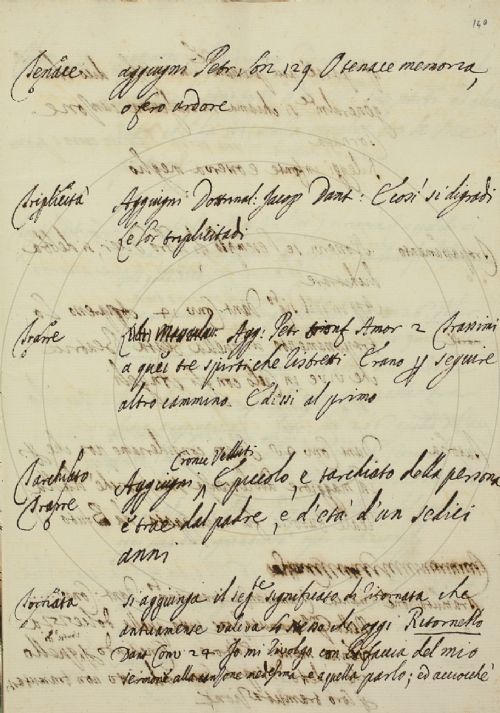 140
Tenace aggiugni Petr. son 129 O tenace memoria,
o fero ardore
Triplicità Aggiugni Dottrinal: Jacop Dant: E così si digradi
Le lor triplicitadi
Trarre Agg: Petr trionf Amor 2 Trassimi
a quei tre spirti che ristretti Erano p seguire
altro cammino. E dissi al primo
Cronic Velluti
Tarchiato Aggiugni E piccolo, e tarchiato della persona
Trarre e trae dal padre, e d'età d'un sedici
anni
Tornata si aggiunga il seg.te significato di Ritornata che
anticamente valeva lo stesso che oggi Ritornello
Dant Conv 24 Io mi rivolgo con la faccia del mio
sermone alla canzone medesima, e a quella parlo; ed acciocchè